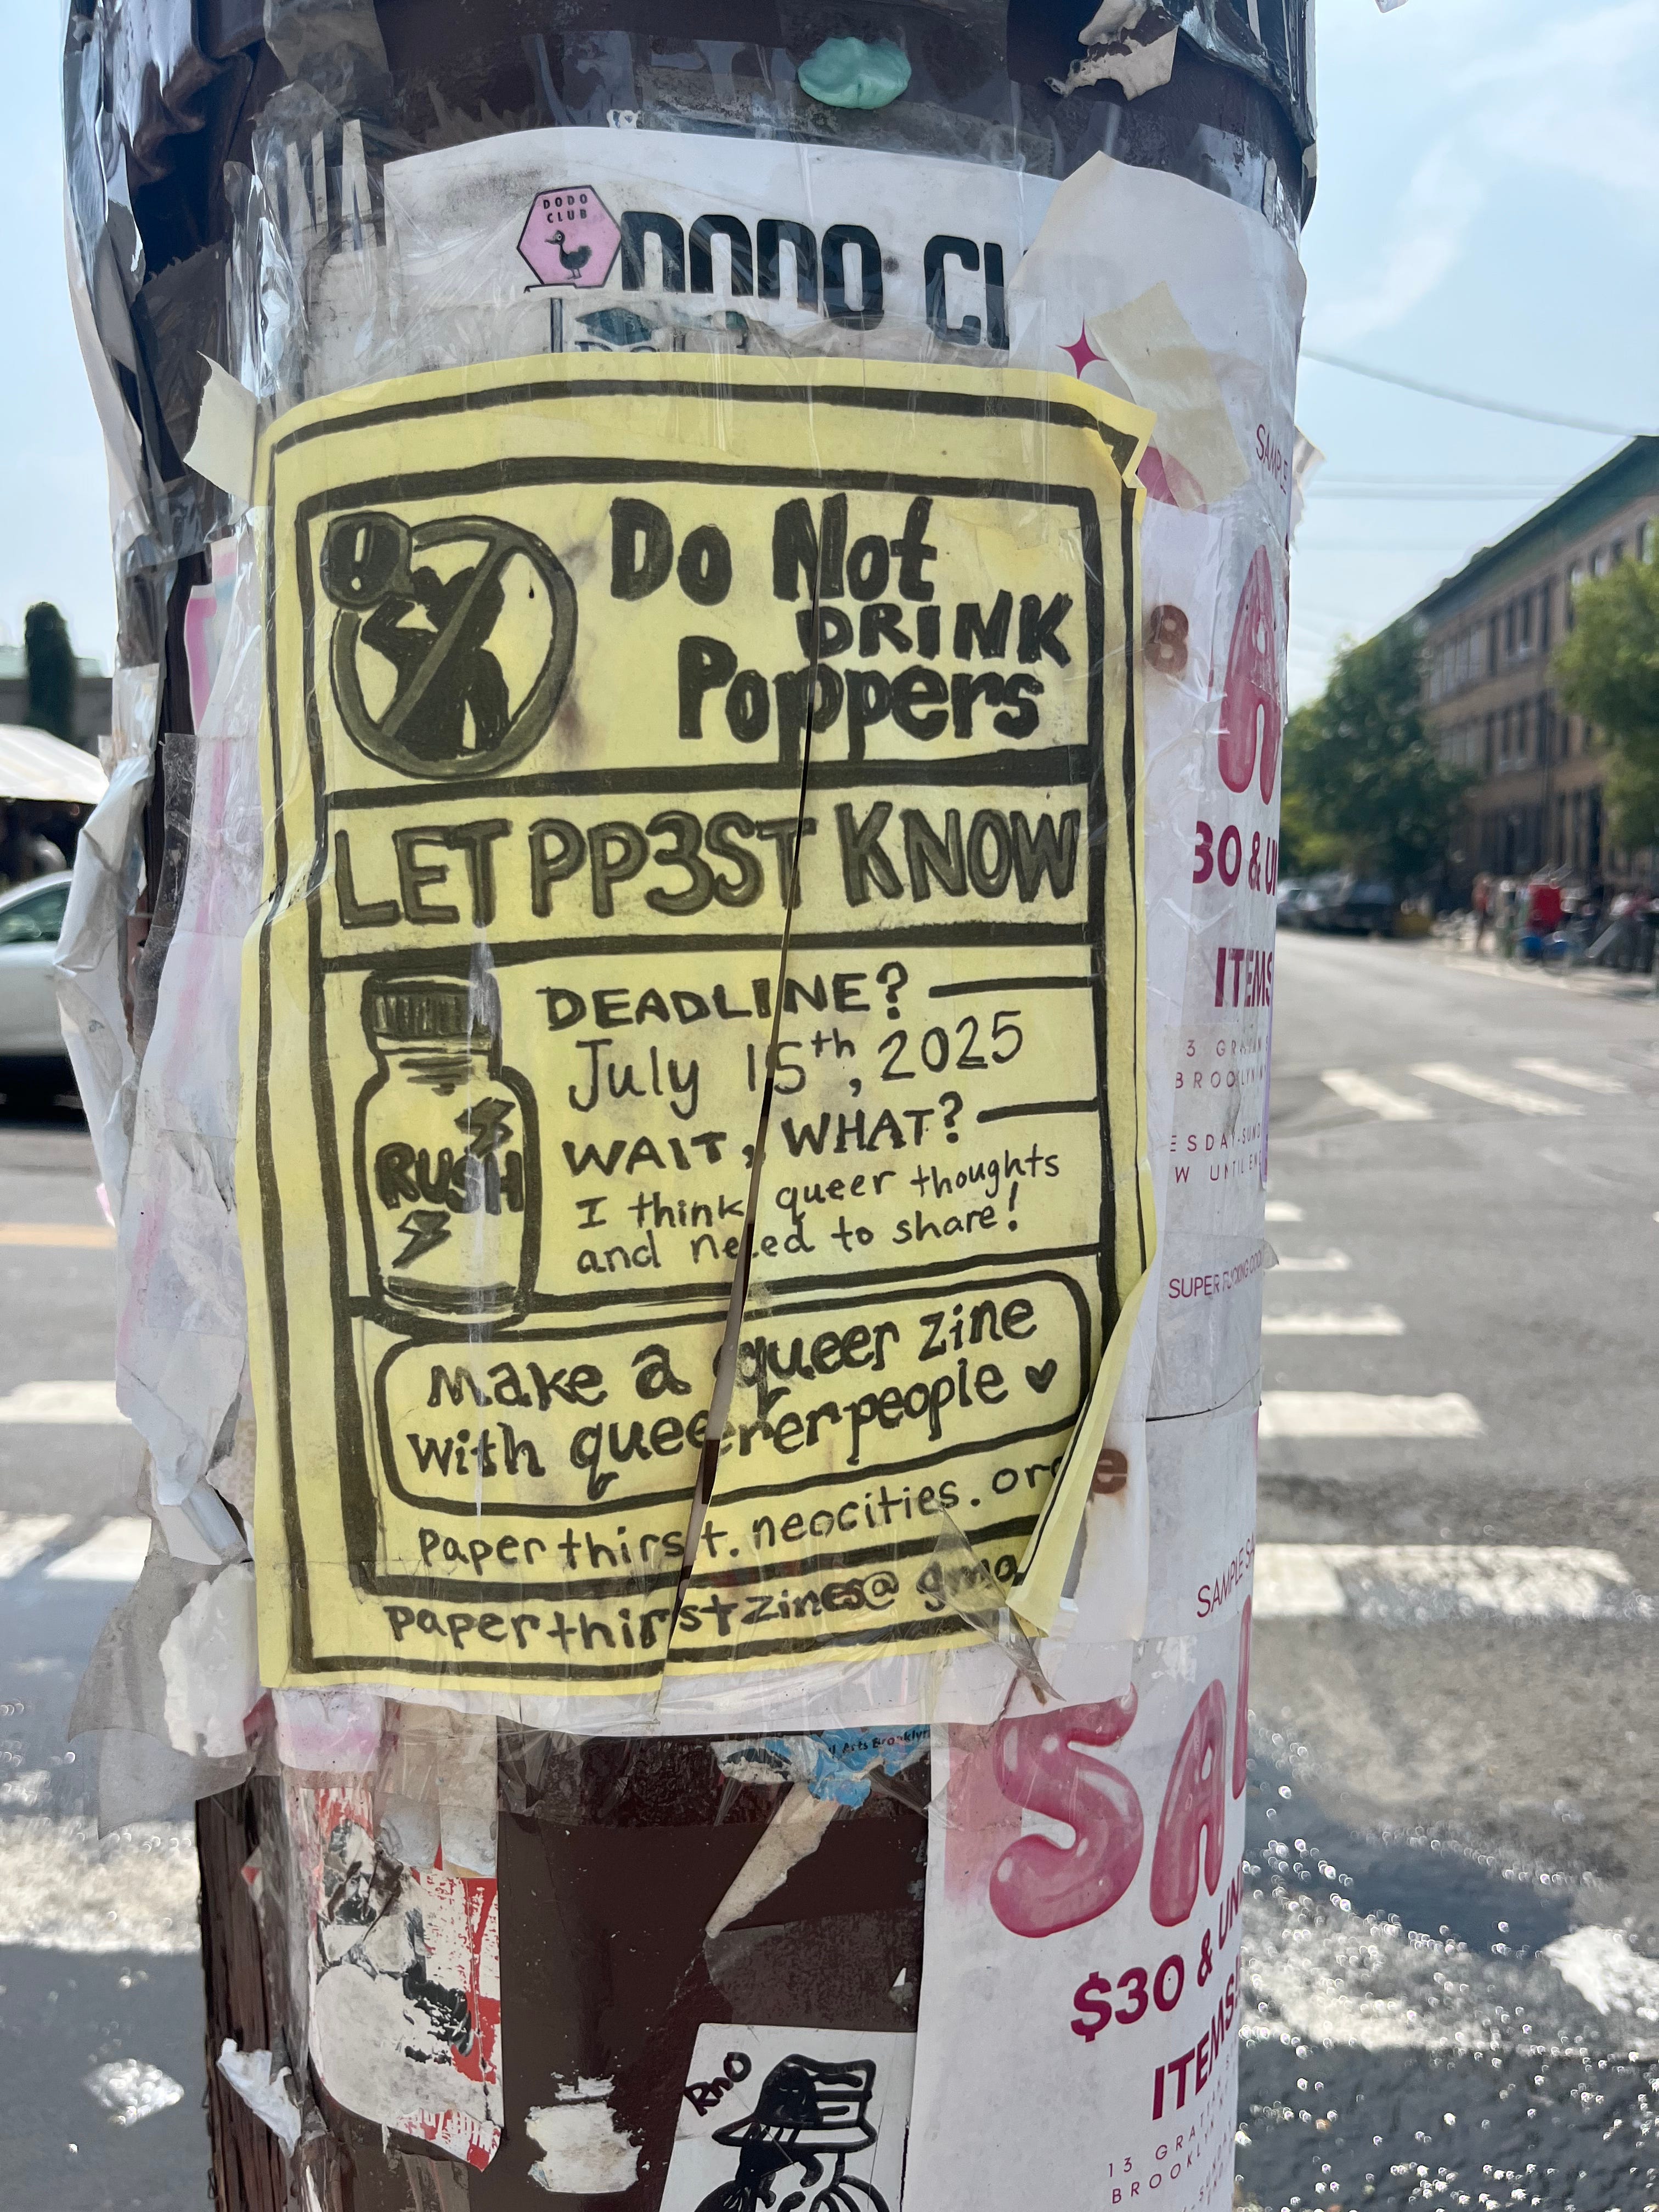 DODO
CLUB
DODO CL
!
Do Not
DRINK
Poppers
LET PP3ST KNOW
DEADLINE?
July 15th, 2025
WAIT, WHAT?
I think queer thoughts
and need to share!
RUSH
Make a queer zine
with queererpeople
paperthirst.neocities.org
paperthirstzines@gma
SAMPLE
A
30 &
ITEMS
BROOKLYN
SUPER
Arts Brooklyn
SAMPLE
SA
$30 &
ITEMS
13
BROOKLYN
RnO